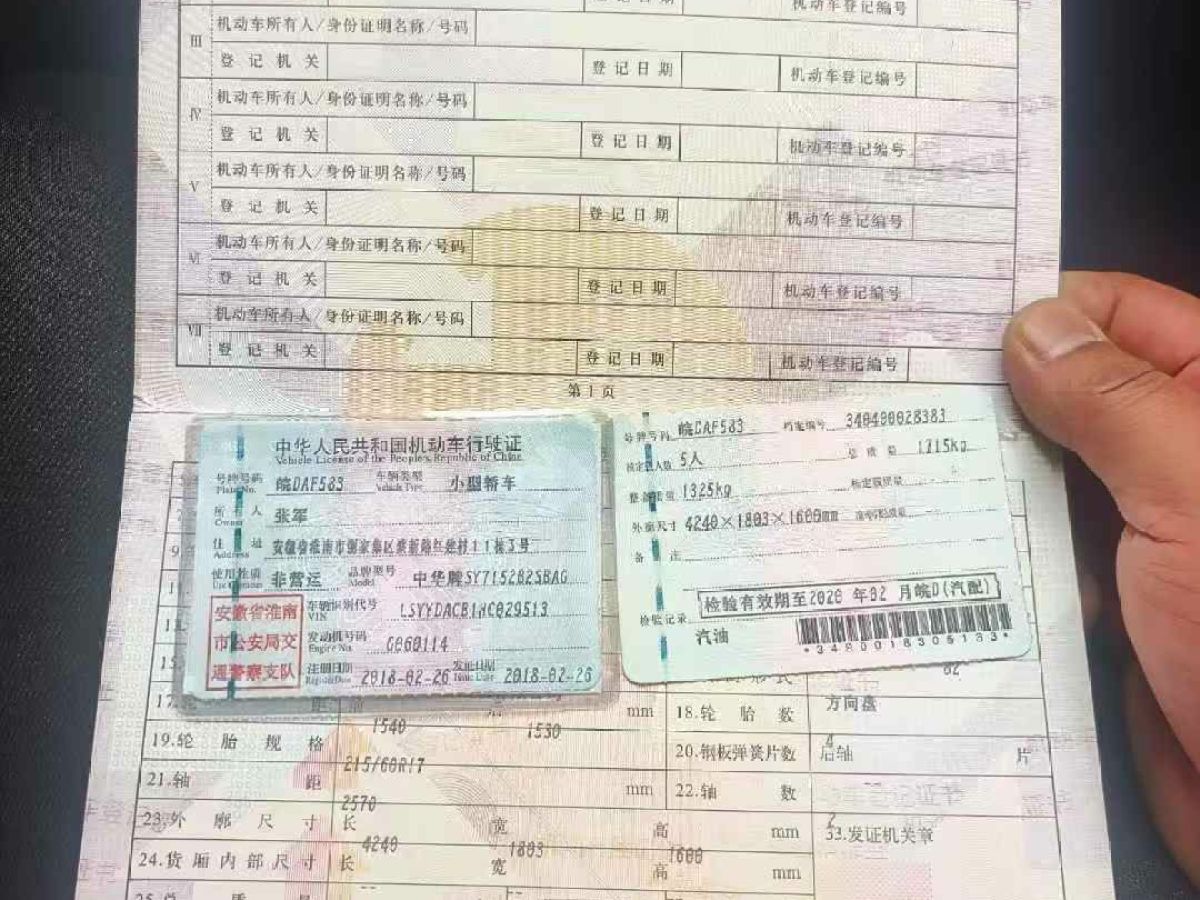 机动车登记编号
III 机动车所有人/身份证明名称/号码
登记机关 登记日期 机动车登记编号
IV 机动车所有人/身份证明名称/号码
登记机关 登记日期 机动车登记编号
V 机动车所有人/身份证明名称/号码
登记机关 登记日期 机动车登记编号
VI 机动车所有人/身份证明名称/号码
登记机关 登记日期 机动车登记编号
VII 机动车所有人/身份证明名称/号码
登记机关 登记日期 机动车登记编号
第1页
中华人民共和国机动车行驶证
Vehicle License of the People's Republic of China
号牌号码 皖DAF583 车辆类型 小型轿车
Plate No. Vehicle Type
所有人 张军
Owner
住址 安徽省淮南市谢家集区 11栋3号
Address
使用性质 非营运 品牌型号 中华牌SY7152B2SBAG
Use Character Model
安徽省淮南
市公安局交
通警察支队
车辆识别代号 LSYYDACB1HC029513
VIN
发动机号码 G060114
Engine No.
注册日期 2018-02-26 发证日期 2018-02-26
Register Date Issue Date
号牌号码 皖DAF583 档案编号 340400028383
核定载人数 5人 总质量 1815kg
整备质量 1325kg 核定载质量
外廓尺寸 4240×1803×1600mm
备注
检验有效期至2020年02月皖D(汽配)
检验记录
汽油
*3480018305183*
方向盘
17.轮距 前 1540 后 1530 mm 18.轮胎数 4
19.轮胎规格 215/60R17 20.钢板弹簧片数 后轴 -- 片
21.轴距 2570 mm 22.轴数 2
23.外廓尺寸 长 4240 宽 1803 高 1600 mm 33.发证机关章
24.货厢内部尺寸 长 -- 宽 -- 高 mm